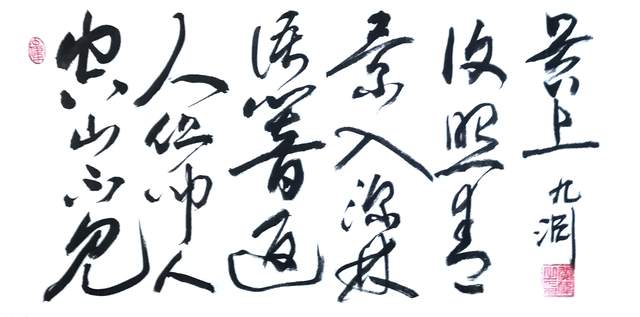 空山不見
人但聞人
語響返
景入深林
復照青
苔上
九